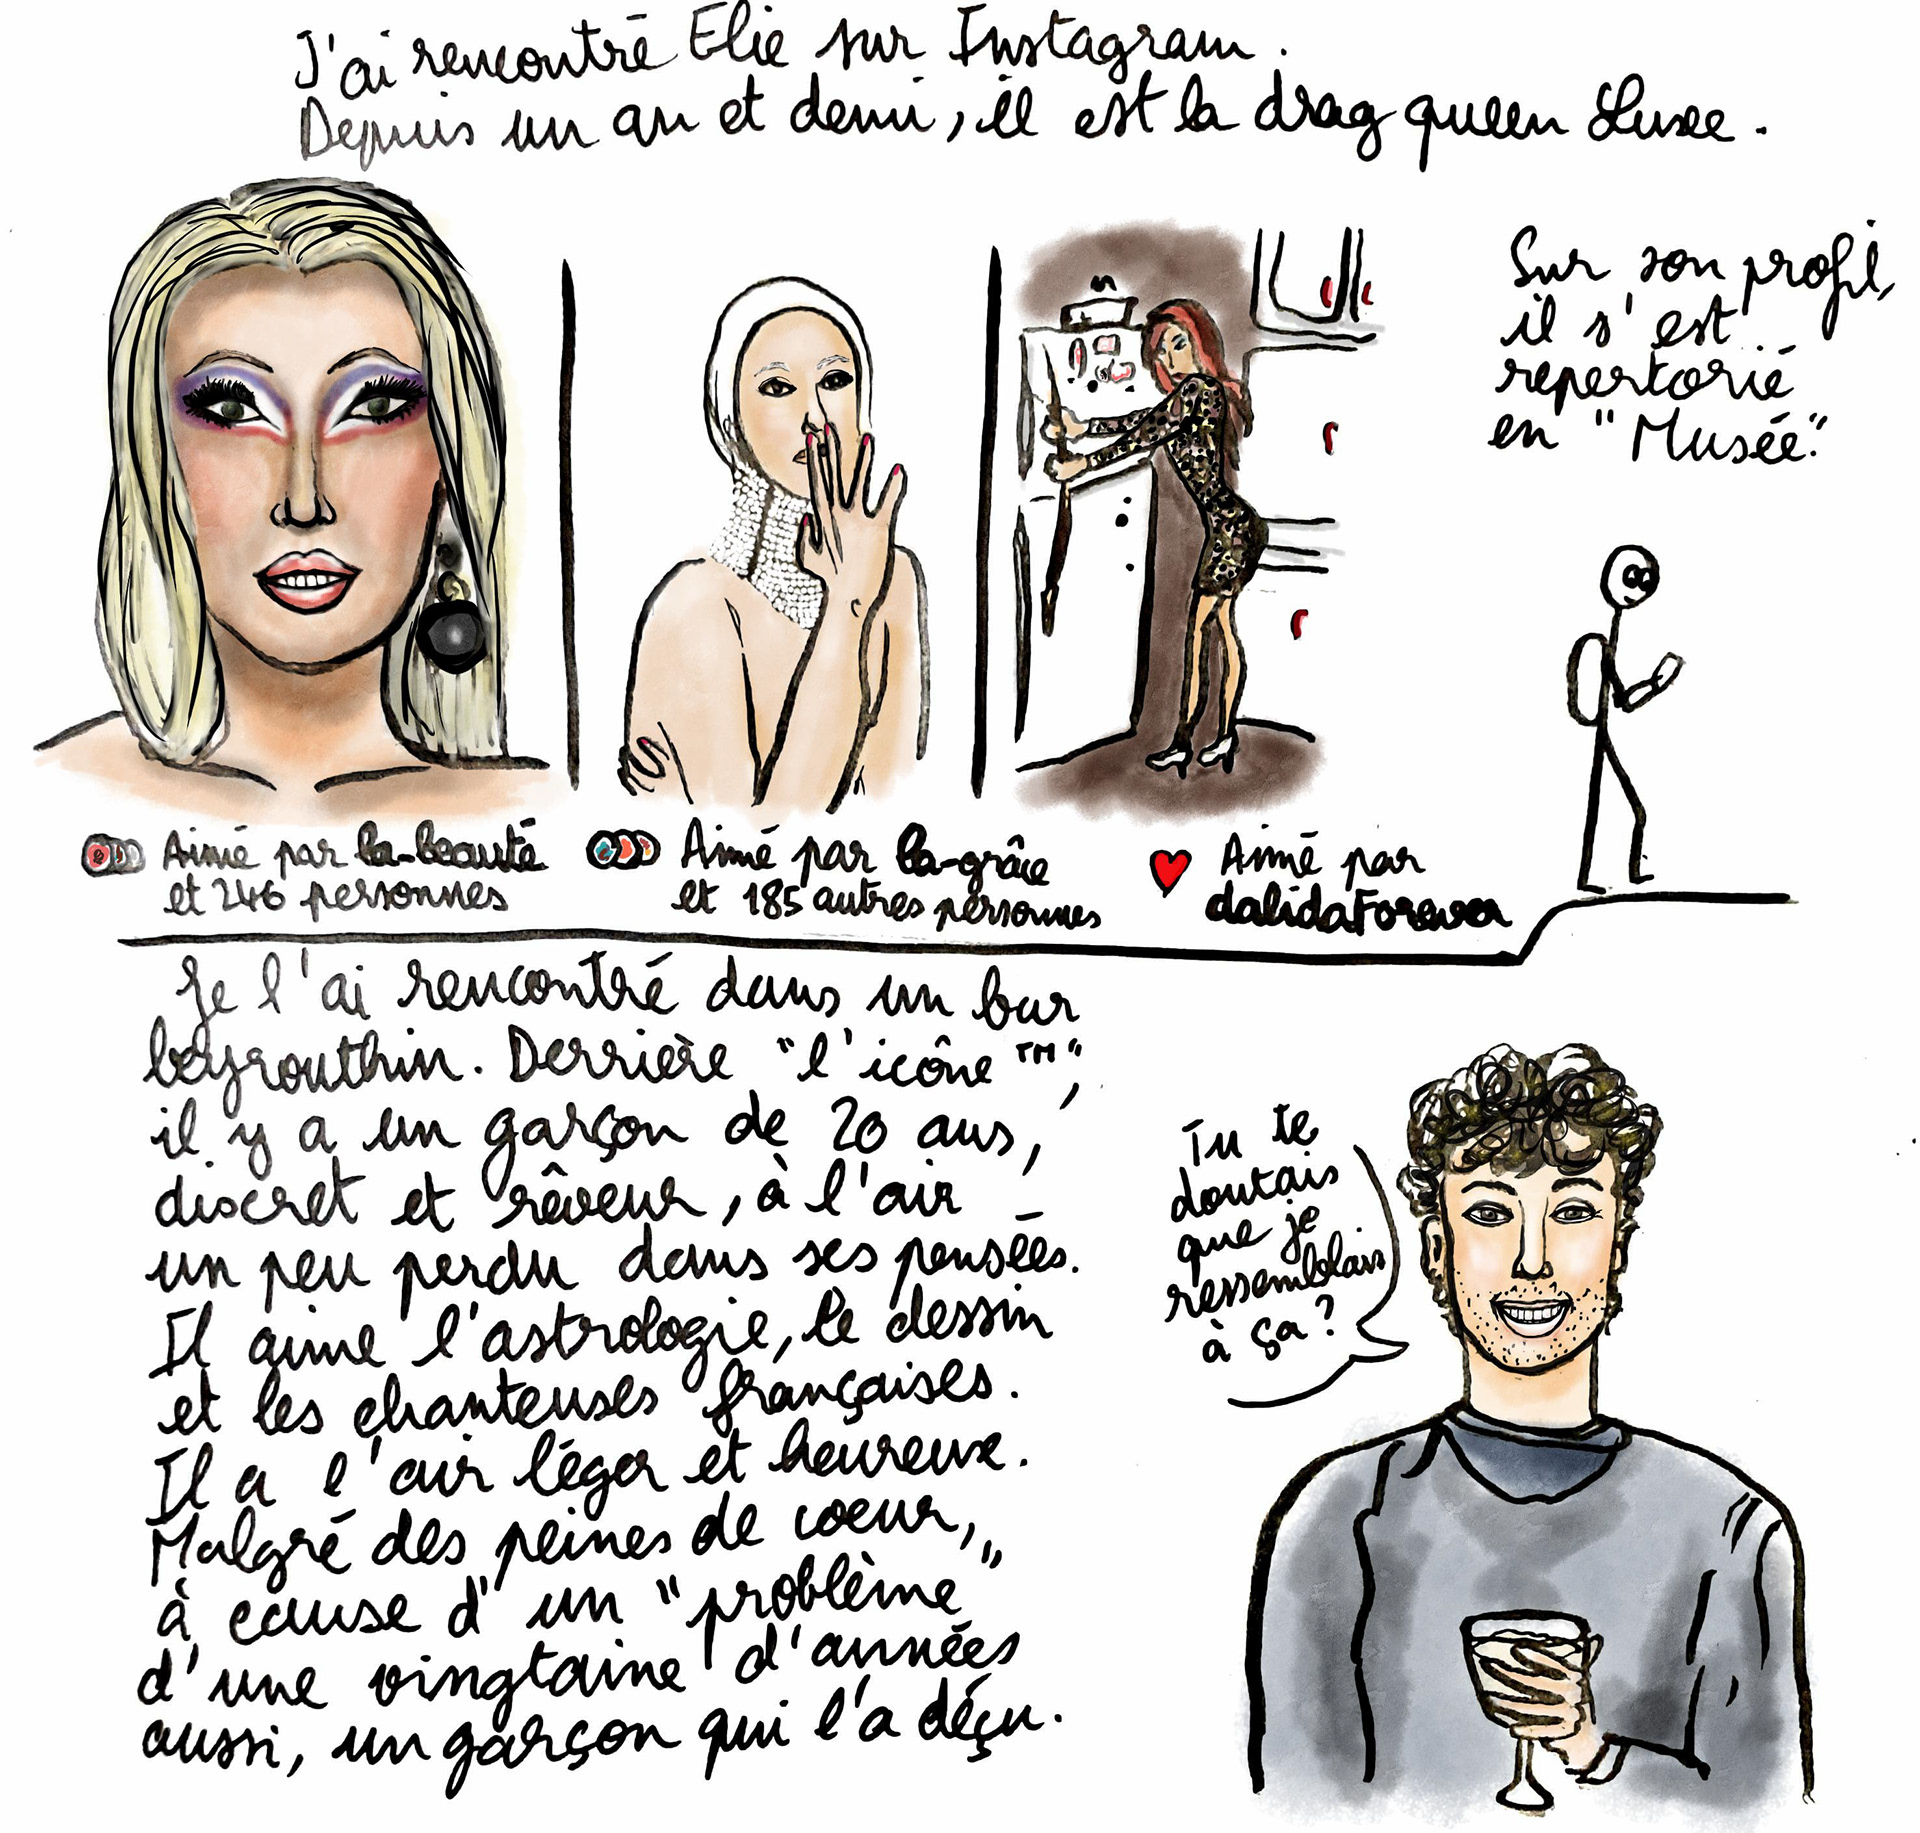 J'ai rencontré Elie sur Instagram.
Depuis un an et demi, il est la drag queen Luxee.
Sur son profil,
il s'est
repertorié
en "Musée".
Aimé par la-beauté
et 246 personnes
Aimé par la-grâce
et 185 autres personnes
Aimé par
dalidaForever
Je l'ai rencontré dans un bar
beyrouthin. Derrière "l'icône ™",
il y a un garçon de 20 ans,
discret et rêveur, à l'air
un peu perdu dans ses pensées.
Il aime l'astrologie, le dessin
et les chanteuses françaises.
Il a l'air léger et heureux.
Malgré des peines de coeur,
à cause d'un "problème"
d'une vingtaine d'années
aussi, un garçon qui l'a déçu.
Tu te
doutais
que je
ressemblais
à ça ?